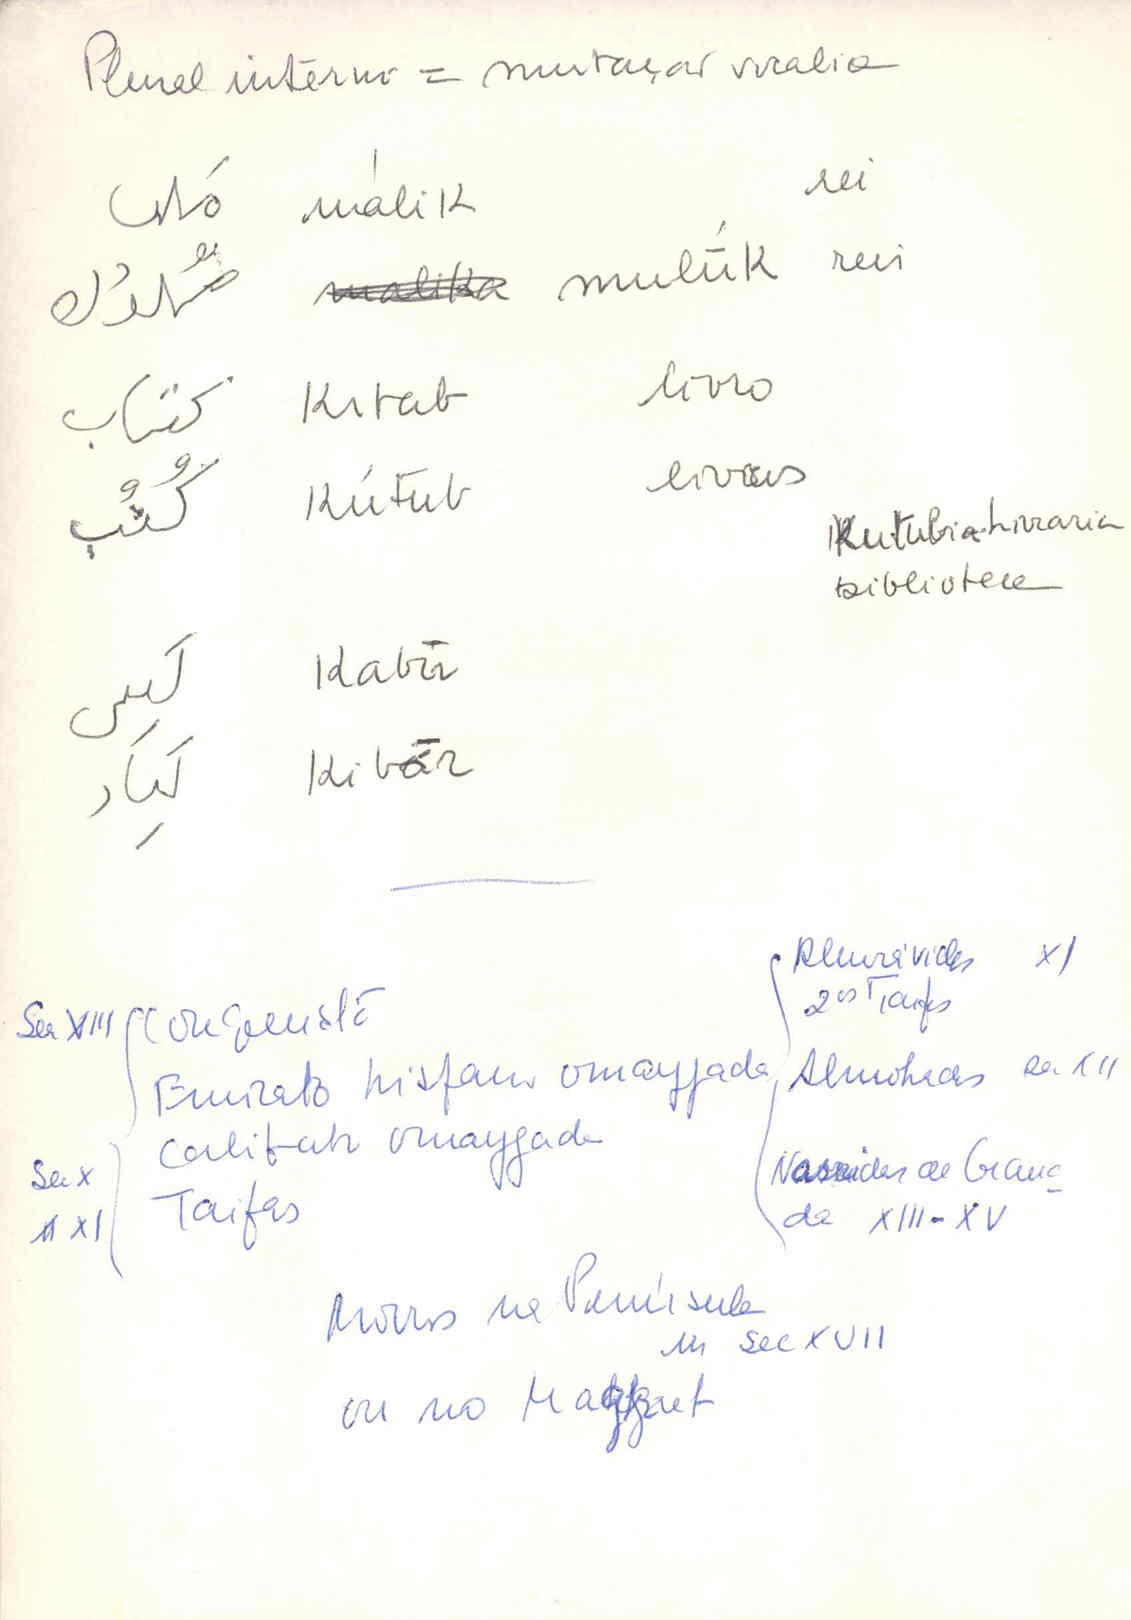 Plural interno = mutação vocalia
ملك málik rei
ملوك malika mulúk reis
كتاب Kitab livro
كُتُب Kútub livros
Kutubia-Livraria
biblioteca
Kabīr
كِبَار Kibār
Almorávides XI
2os Taifas
Sec VIII Conquista
Emirato hispano omayyada
Almohadas sec XII
Califato omayyada
Sec X
Nasridas de Grana
XI Taifas
da XIII-XV
Mouros na Península
in sec XVII
ou no Magreb